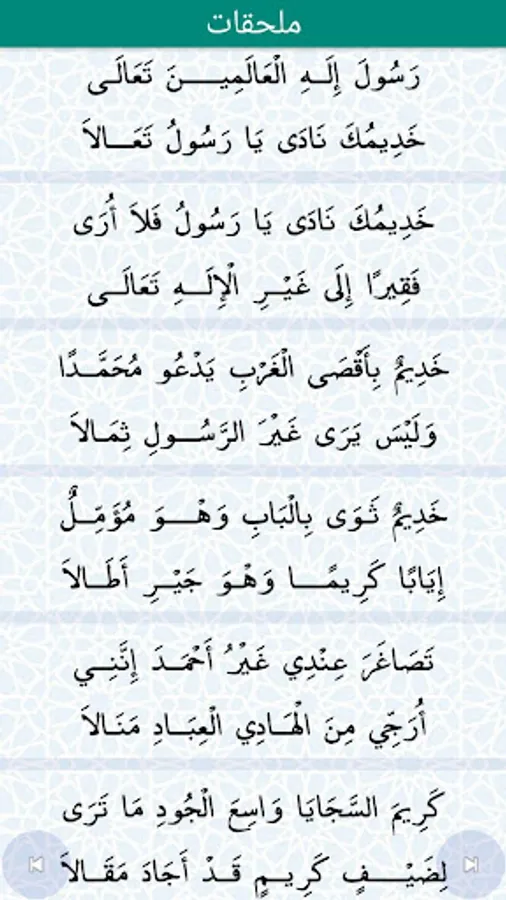 ملحقات
رَسُولَ إِلَـهِ الْعَالَمِيـــنَ تَعَالَـى
خَدِيمُكَ نَادَى يَا رَسُولُ تَعَـــالاَ
خَدِيمُكَ نَادَى يَا رَسُولُ فَلاَ أُرَى
فَقِيرًا إِلَى غَيْـــرِ الْإِلَـــهِ تَعَالَـى
خَدِيمٌ بِأَقْصَى الْغَرْبِ يَدْعُو مُحَمَّــدًا
وَلَيْسَ يَرَى غَيْرَ الرَّسُـــولِ ثِمَـالاَ
خَدِيمٌ ثَـوَى بِالْبَابِ وَهْـــوَ مُؤَمِّــلٌ
إِيَابًا كَرِيمًـــا وَهْـوَ جَيْـرِ أَطَـالاَ
تَصَاغَرَ عِنْدِي غَيْرُ أَحْمَـدَ إِنَّنِــي
أُرَجِّي مِنَ الْهَـادِي الْعِبَـادِ مَنَـالاَ
كَرِيمَ السَّجَايَا وَاسِعَ الْجُودِ مَا تَرَى
لِضَيْـــفٍ كَرِيـمٍ قَـدْ أَجَادَ مَقَـالاَ